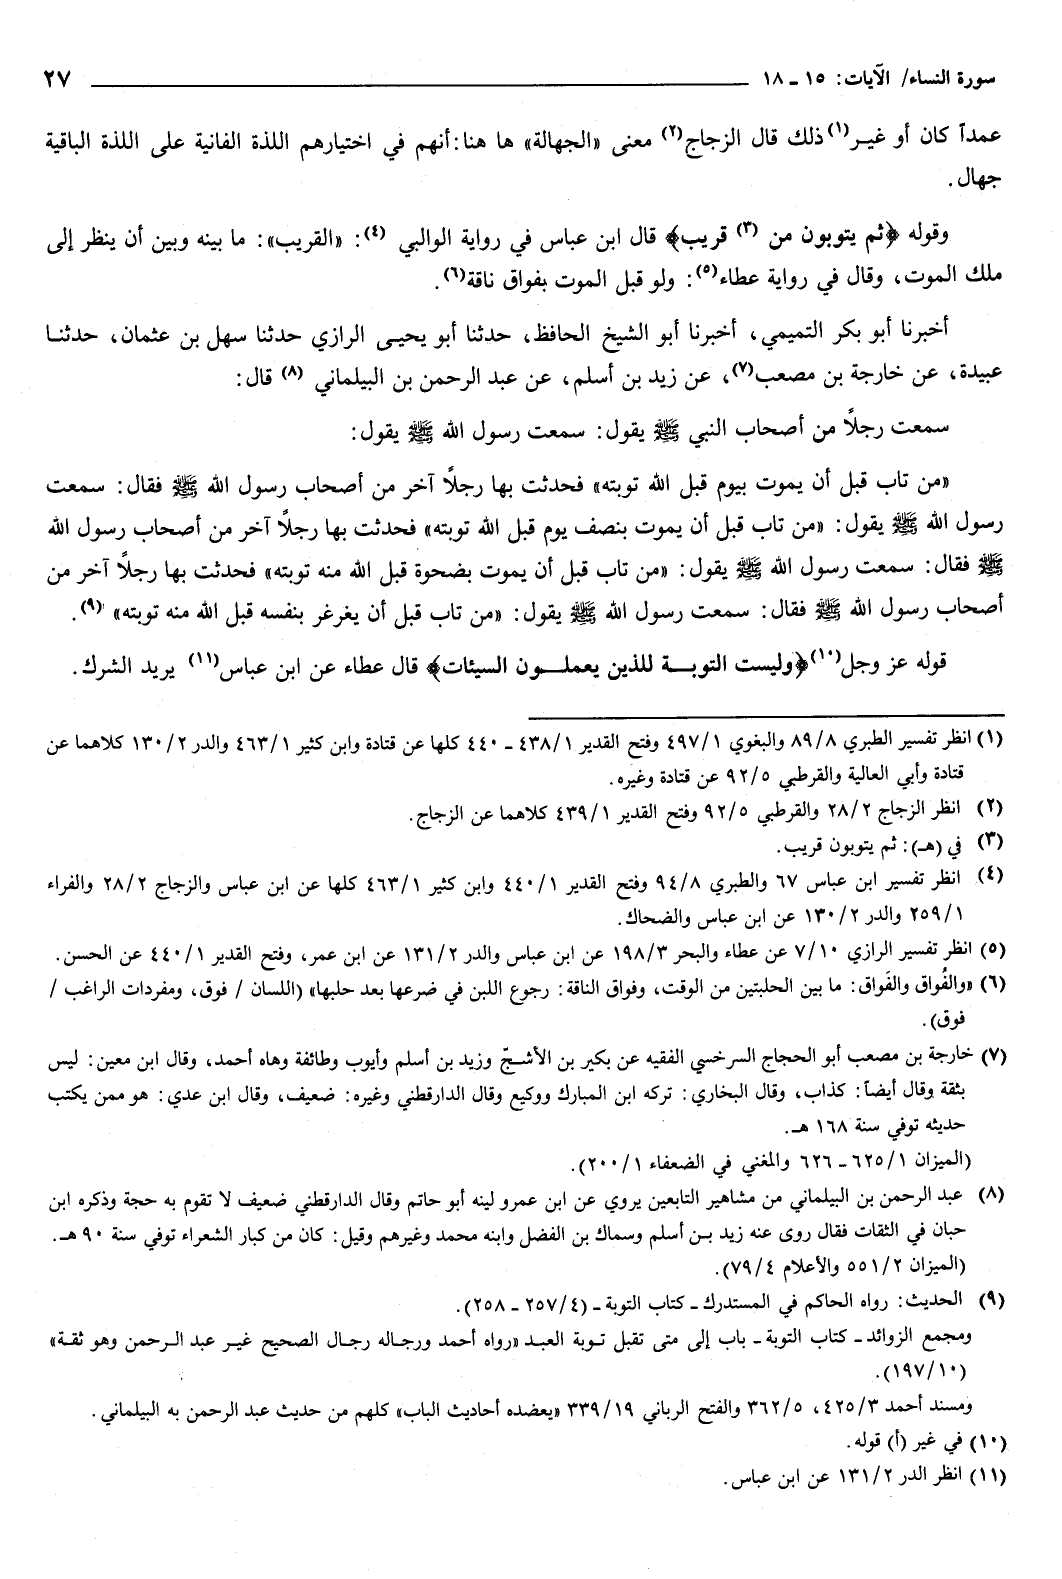 سورة النساء/ الآيات: ١٥ ـ ١٨ ٢٧
عمداً كان أو غيـر(١) ذلك قال الزجاج(٢) معنى «الجهالة» ها هنا: أنهم في اختيارهم اللذة الفانية على اللذة الباقية
جهال.
وقوله ﴿ثم يتوبون من (٣) قريب﴾ قال ابن عباس في رواية الوالبي (٤): «القريب»: ما بينه وبين أن ينظر إلى
ملك الموت، وقال في رواية عطاء(٥): ولو قبل الموت بفواق ناقة(٦).
أخبرنا أبو بكر التميمي، أخبرنا أبو الشيخ الحافظ، حدثنا أبو يحيـى الرازي حدثنا سهل بن عثمان، حدثنـا
عبيدة، عن خارجة بن مصعب(٧)، عن زيد بن أسلم، عن عبد الرحمن بن البيلماني (٨) قال:
سمعت رجلاً من أصحاب النبي ﷺ يقول: سمعت رسول الله ﷺ يقول:
«من تاب قبل أن يموت بيوم قبل الله توبته» فحدثت بها رجلاً آخر من أصحاب رسول الله ﷺ فقال: سمعت
رسول الله ﷺ يقول: «من تاب قبل أن يموت بنصف يوم قبل الله توبته» فحدثت بها رجلاً آخر من أصحاب رسول الله
ﷺ فقال: سمعت رسول الله ﷺ يقول: «من تاب قبل أن يموت بضحوة قبل الله منه توبته» فحدثت بها رجلاً آخر من
أصحاب رسول الله ﷺ فقال: سمعت رسول الله ﷺ يقول: «من تاب قبل أن يغرغر بنفسه قبل الله منه توبته» (٩).
قوله عز وجل(١٠) ﴿وليست التوبـة للذين يعملـون السيئات﴾ قال عطاء عن ابن عباس(١١) يريد الشرك.
(١) انظر تفسير الطبري ٨/٨٩ والبغوي ١/٤٩٧ وفتح القدير ١/٤٣٨ ـ ٤٤٠ كلها عن قتادة وابن كثير ١/٤٦٣ والدر ٢/١٣٠ كلاهما عن
قتادة وأبي العالية والقرطبي ٥/٩٢ عن قتادة وغيره.
(٢) انظر الزجاج ٢/٢٨ والقرطبي ٥/٩٢ وفتح القدير ١/٤٣٩ كلاهما عن الزجاج.
(٣) في (هـ): ثم يتوبون قريب.
(٤) انظر تفسير ابن عباس ٦٧ والطبري ٨/٩٤ وفتح القدير ١/٤٤٠ وابن كثير ١/٤٦٣ كلها عن ابن عباس والزجاج ٢/٢٨ والفراء
١/٢٥٩ والدر ٢/١٣٠ عن ابن عباس والضحاك.
(٥) انظر تفسير الرازي ١٠/٧ عن عطاء والبحر ٣/١٩٨ عن ابن عباس والدر ٢/١٣١ عن ابن عمر، وفتح القدير ١/٤٤٠ عن الحسن.
(٦) «والفُواق والفَواق: ما بين الحلبتين من الوقت، وفواق الناقة: رجوع اللبن في ضرعها بعد حلبها» (اللسان / فوق، ومفردات الراغب /
فوق).
(٧) خارجة بن مصعب أبو الحجاج السرخسي الفقيه عن بكير بن الأشجّ وزيد بن أسلم وأيوب وطائفة وهاه أحمد، وقال ابن معين: ليس
بثقة وقال أيضاً: كذاب، وقال البخاري: تركه ابن المبارك ووكيع وقال الدارقطني وغيره: ضعيف، وقال ابن عدي: هو ممن يكتب
حديثه توفي سنة ١٦٨ هـ.
(الميزان ١/٦٢٥ ـ ٦٢٦ والمغني في الضعفاء ١/٢٠٠).
(٨) عبد الرحمن بن البيلماني من مشاهير التابعين يروي عن ابن عمرو لينه أبو حاتم وقال الدارقطني ضعيف لا تقوم به حجة وذكره ابن
حبان في الثقات فقال روى عنه زيد بـن أسلم وسماك بن الفضل وابنه محمد وغيرهم وقيل: كان من كبار الشعراء توفي سنة ٩٠ هـ.
(الميزان ٢/٥٥١ والأعلام ٤/٧٩).
(٩) الحديث: رواه الحاكم في المستدرك ـ كتاب التوبة ـ (٤/٢٥٧ ـ ٢٥٨).
ومجمع الزوائد ـ كتاب التوبة ـ باب إلى متى تقبل تـوبة العبـد «رواه أحمد ورجـاله رجـال الصحيح غيـر عبد الـرحمن وهو ثقـة»
(١٠/١٩٧).
ومسند أحمد ٣/٤٢٥، ٥/٣٦٢ والفتح الرباني ١٩/٣٣٩ «يعضده أحاديث الباب» كلهم من حديث عبد الرحمن به البيلماني.
(١٠) في غير (أ) قوله.
(١١) انظر الدر ٢/١٣١ عن ابن عباس.